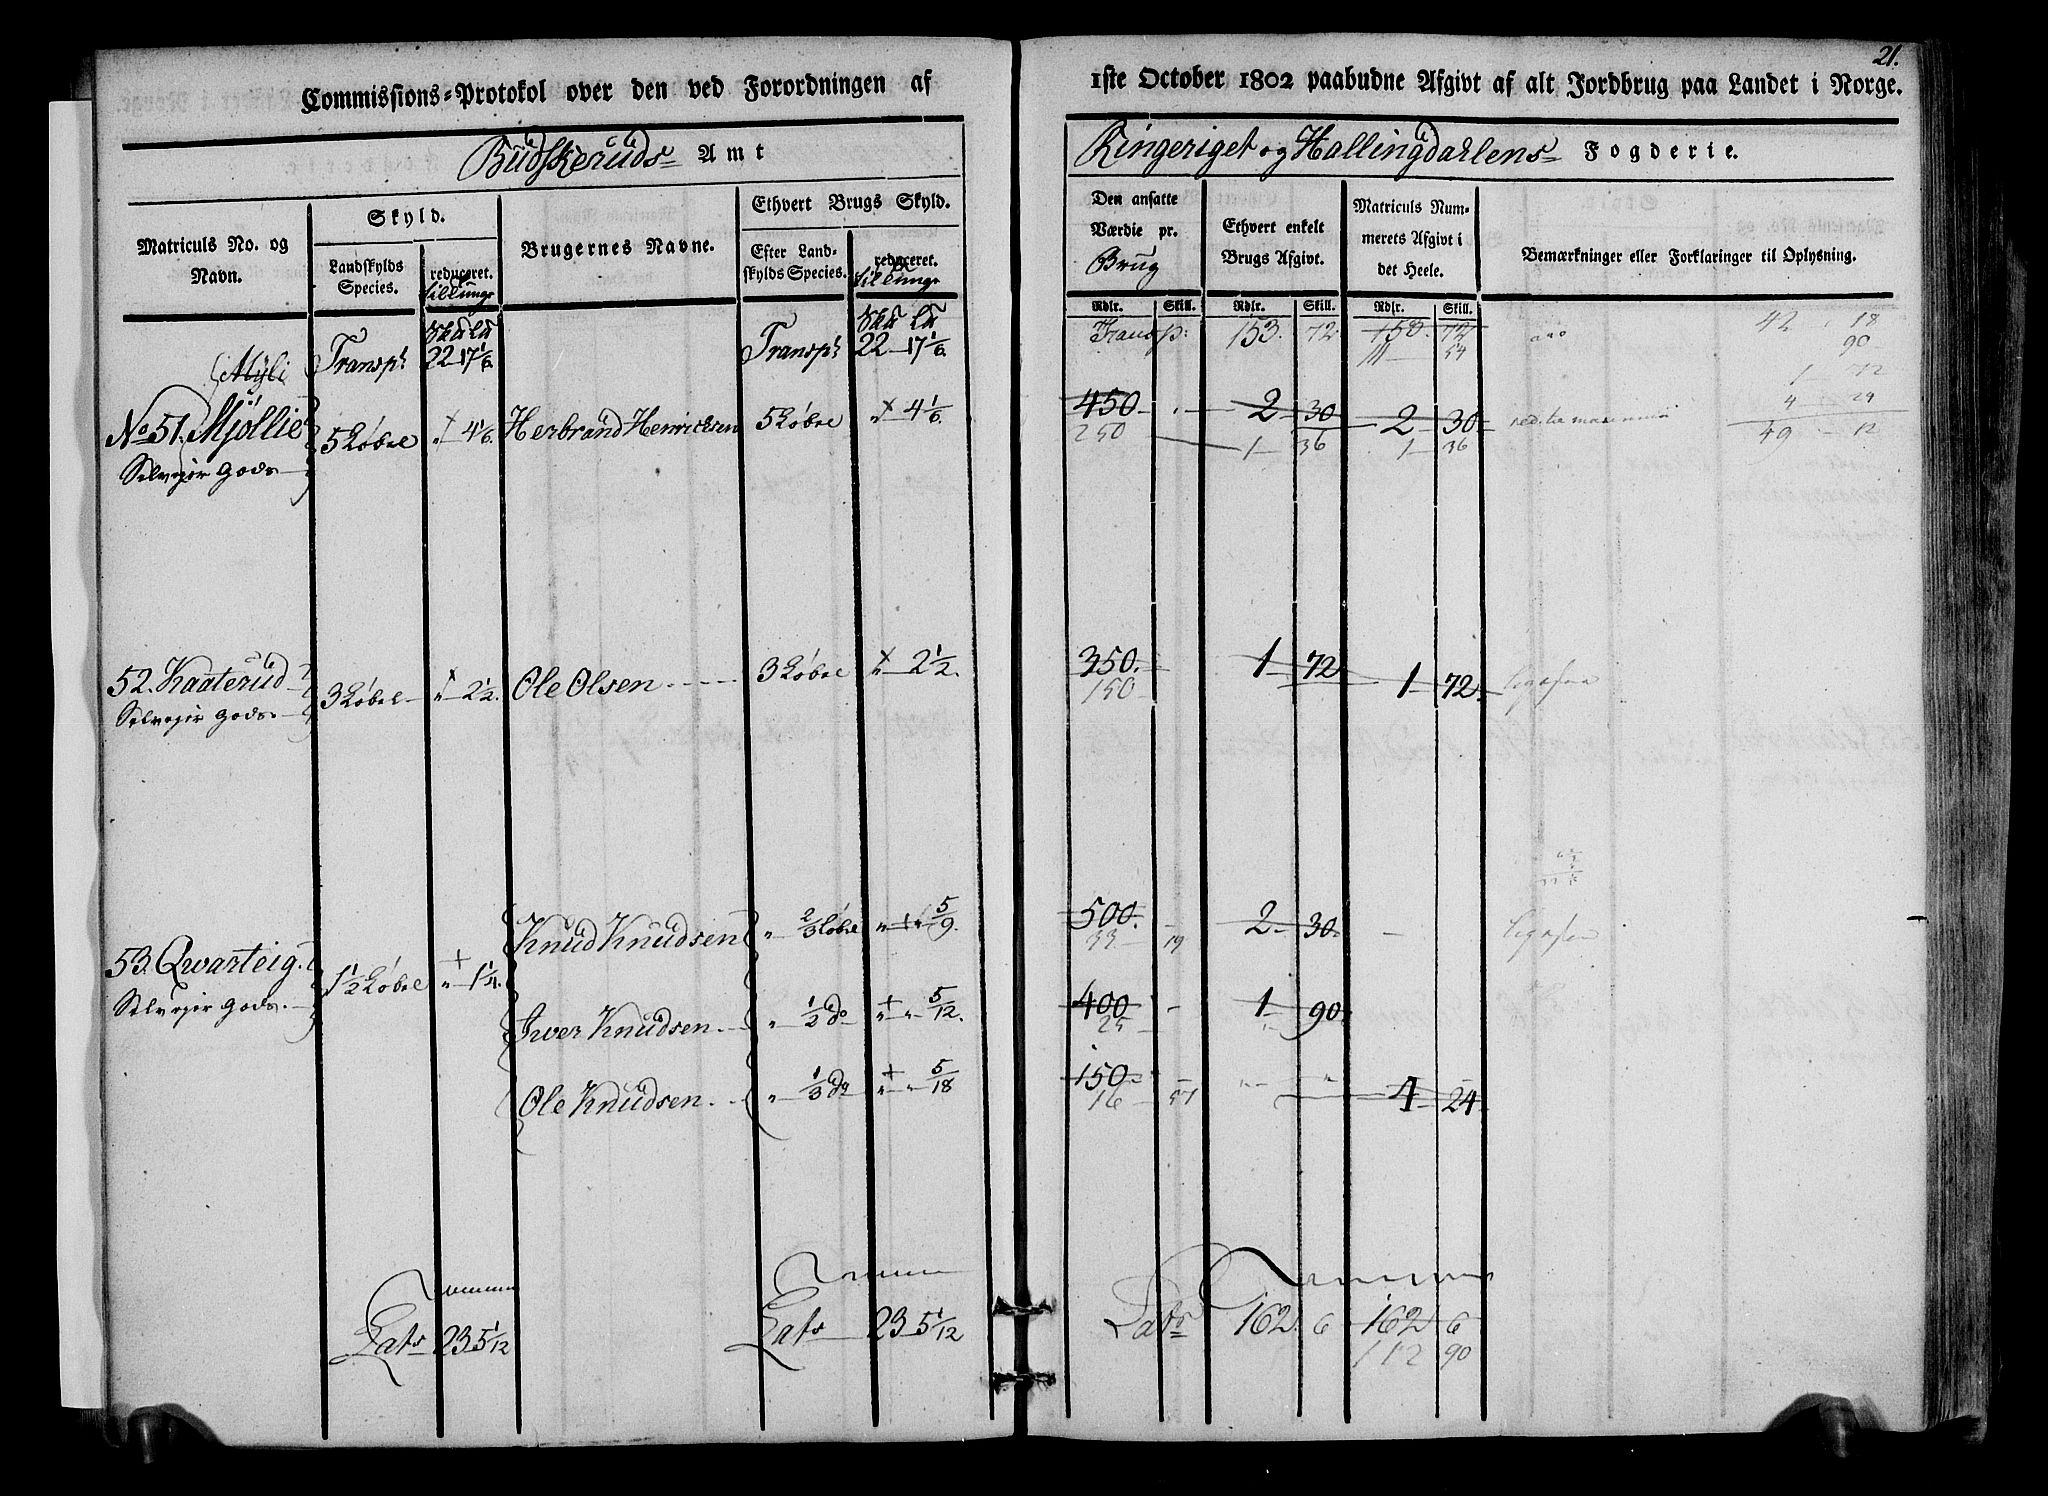 21.
Commissions-Protokol over den ved Forordningen af
1ste October 1802 paabudne Afgivt af alt Jordbrug paa Landet i Norge.
Budskeruds Amt
Ringeriget og Hallingdahlens Fogderie.
Matriculs No. og Navn.
Skyld.
Landskylds Species.
reduceret.
Brugernes Navne.
Ethvert Brugs Skyld.
Efter Landskylds Species.
reduceret.
Den ansatte Værdie pr. Brug
Ethvert enkelt Brugs Afgivt.
Matriculs Nummerets Afgivt i det Heele.
Bemærkninger eller Forklaringer til Oplysning.
Rdlr. Skill. Rdlr. Skill. Rdlr. Skill.
Transp: 22 17 1/6 Transp: 22 17 1/6 Transp: 153. 72 150. 72 42 18
111 54 90
Mÿli 1 72
No 51. Mjøllie 5 Løbe " 4 1/6 Herbrand Henricksen 5 Løbe " 4 1/6 450 2 30 2 30 4 29
Selveyer Gods 250 1 36 1 36 49 12
52. Kaaterud 3 Løbe " 2 1/2. Ole Olsen 3 Løbe " 2 1/2. 350. 1 72 1 72
Selveyer Gods 150
Knud Knudsen " 2/3 Løbe " " 5/9. 500 2 30
33 19
53. Qvarteig. 1 1/2 Løbe " 1 1/4.
Selveyer Gods.
Iver Knudsen. " 1/2 do " " 5/12. 400 1 90
25
Ole Knudsen. " 1/3 do " " 5/18 150 " " 4 24
16 51
Summa Summa Summa
Lats 23 5 1/12 Lats 23 5 1/12 Lats 162. 6 162 6
112 90